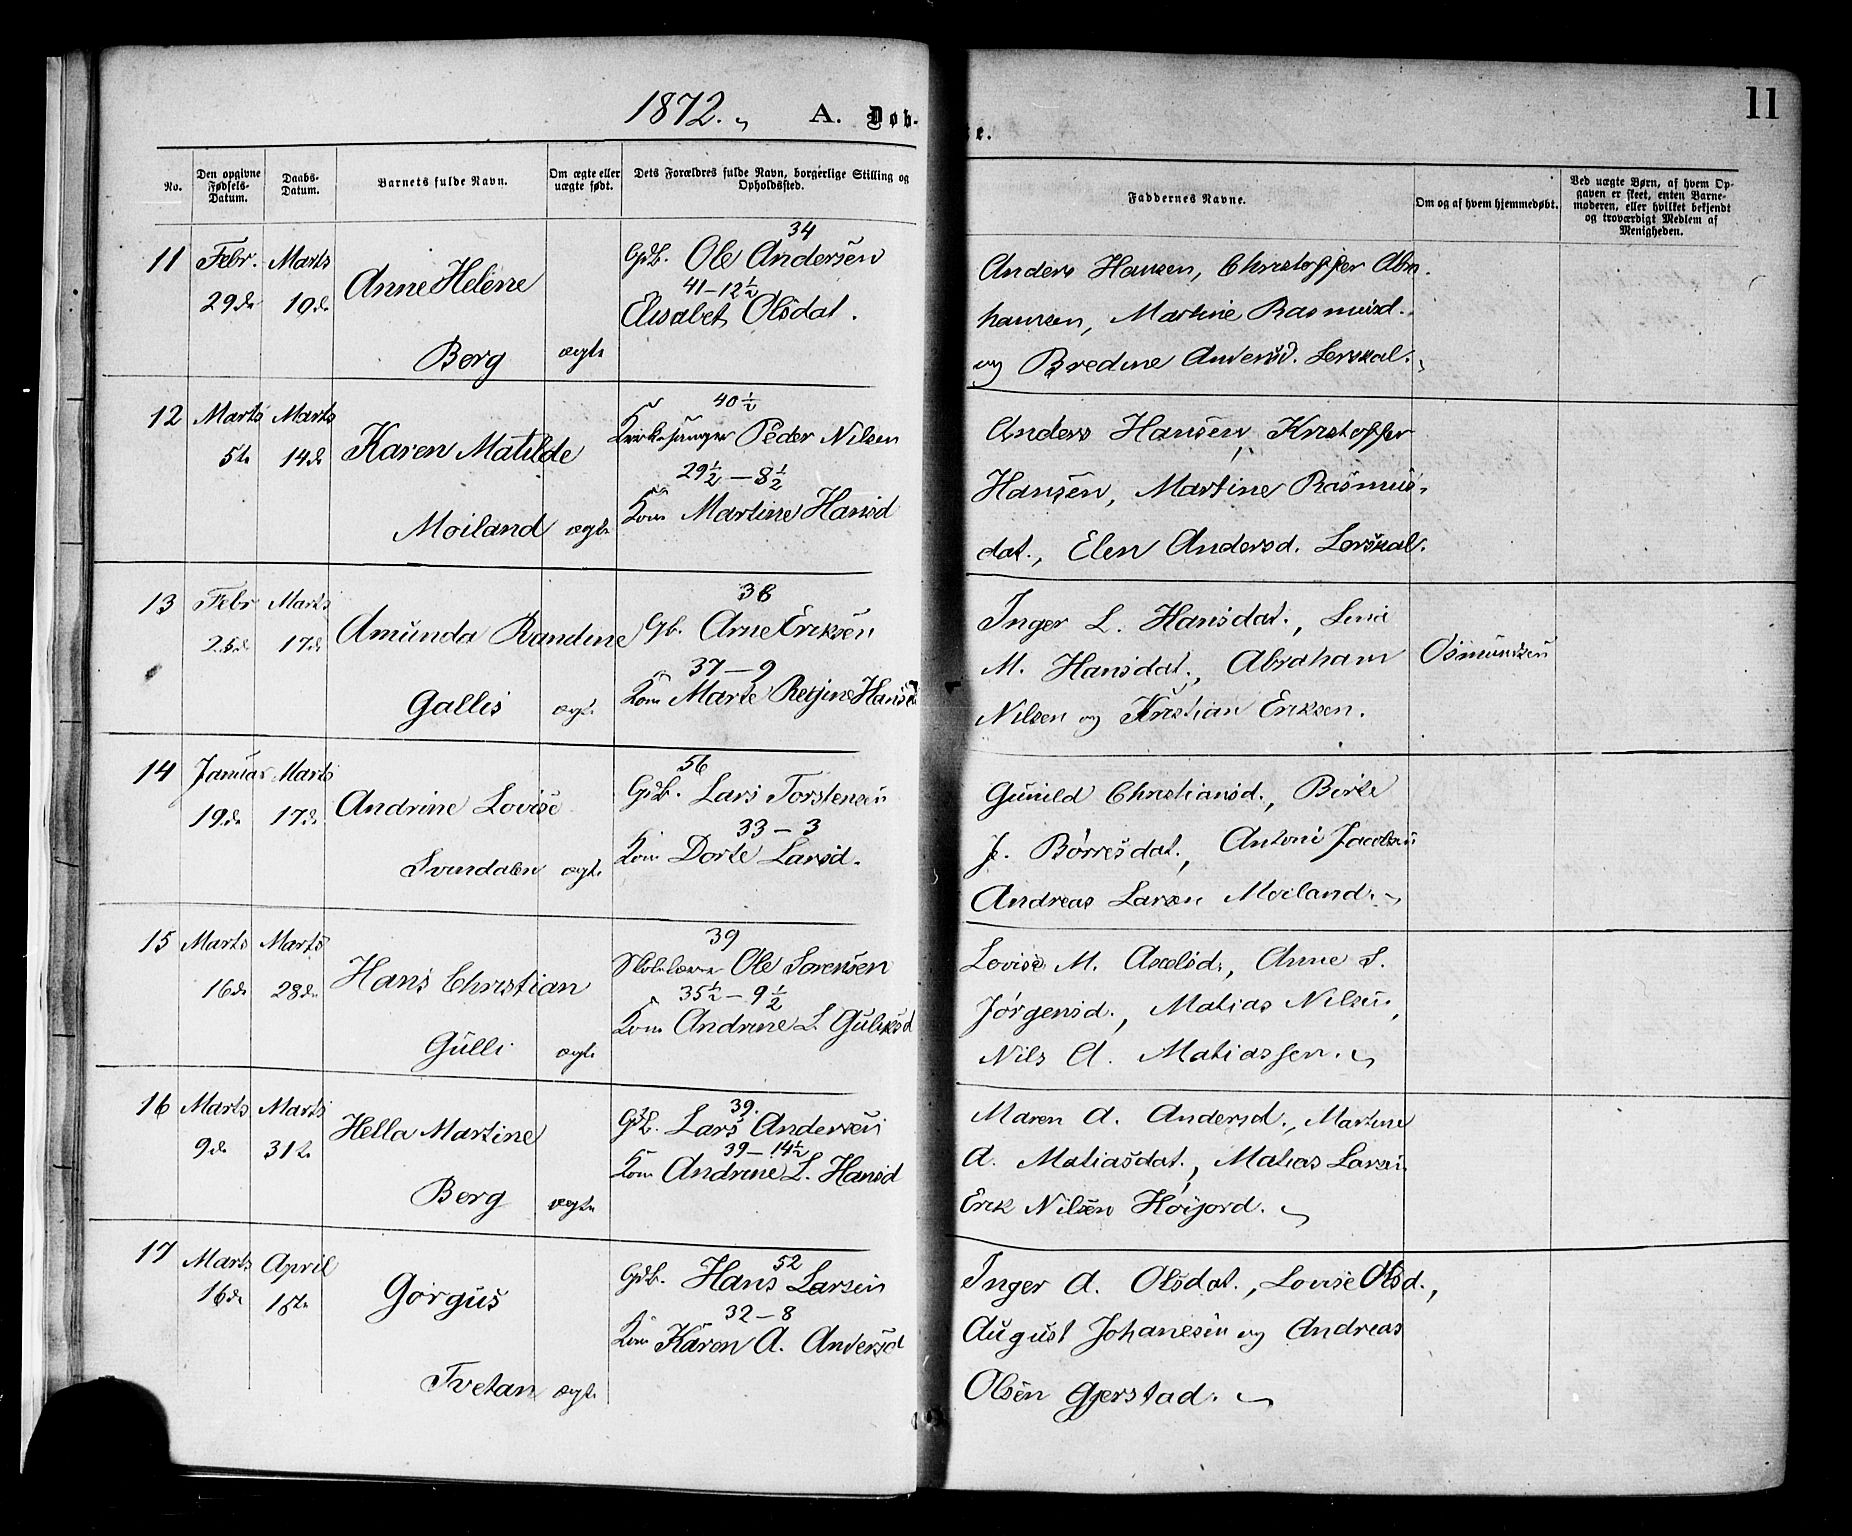 1872. A. Døb-
te.
11
No.
Den opgivne Fødsels-Datum.
Daabs-Datum.
Barnets fulde Navn.
Om ægte eller uægte født.
Dets Forældres fulde Navn, borgerlige Stilling og Opholdssted.
Faddernes Navne.
Om og af hvem hjemmedøbt.
Ved uægte Børn, af hvem Opgaven er skeet, enten Barnemoderen, eller hvilket bekjendt og troværdigt Medlem af Menigheden.
11 Febr. Marts
29de 10de
Anne Helene
Berg ægte
34
Gdb. Ole Andersen
41-12½
Elisabet Olsdat.
Anders Hansen, Christoffer Abra-
hamsen, Martine Rasmusd.
og Bredine Andersd. Lerskal.
12 Marts Marts
5te 14de
Karen Matilde
Moiland ægte
40½
Kirkesanger Peder Nilsen
29½ - 8½
Kone Martine Hansd
Anders Hansen, Kristoffer
Hansen, Martine Rasmus-
dat., Elen Andersd. Lerskal.
13 Febr Marts
25de 17de
Amunda Randine
Gallis ægte
38
Gb. Arne Eriksen
37-9
Kone Marte Regine Hansd
Inger L. Hansdat., Lene
M. Hansdat., Abraham
Nilsen og Kristian Eriksen.
Osmundsen
14 Januar Marts
19de 17de
Andrine Lovise
Svendalen ægte
56
Gdb. Lars Torstensen
33-3
Kone Dorte Larsd.
Gunild Christiansd., Birte
J. Børresdat., Antoni Jacobsen
Andreas Larsen Moiland.
15 Marts Marts
16de 28de
Hans Christian
Gulli ægte
39
Skolelærer Ole Sørensen
35½ - 9½
Kone Andrine L. Guliksd
Lovise M. Axelsd., Anne S.
Jørgensd., Matias Nilsen,
Nils A. Matiassen.
16 Marts Marts
9de 31te
Hella Martine
Berg ægte
39.
Gdb. Lars Andersen
39-14½
Kone Andrine L. Hansd
Maren A. Andersd., Martine
A. Matiasdat., Matias Larsen
Erik Nilsen Høijord.
17 Marts April
16de 1ste
Gorgus
Tvetan ægte
52
Gdb. Hans Larsen
32-8
Kone Karen A. Andersd
Inger A. Olsdat., Lovise Olsd.,
August Johanesen og Andreas
Olsen Gjerstad.